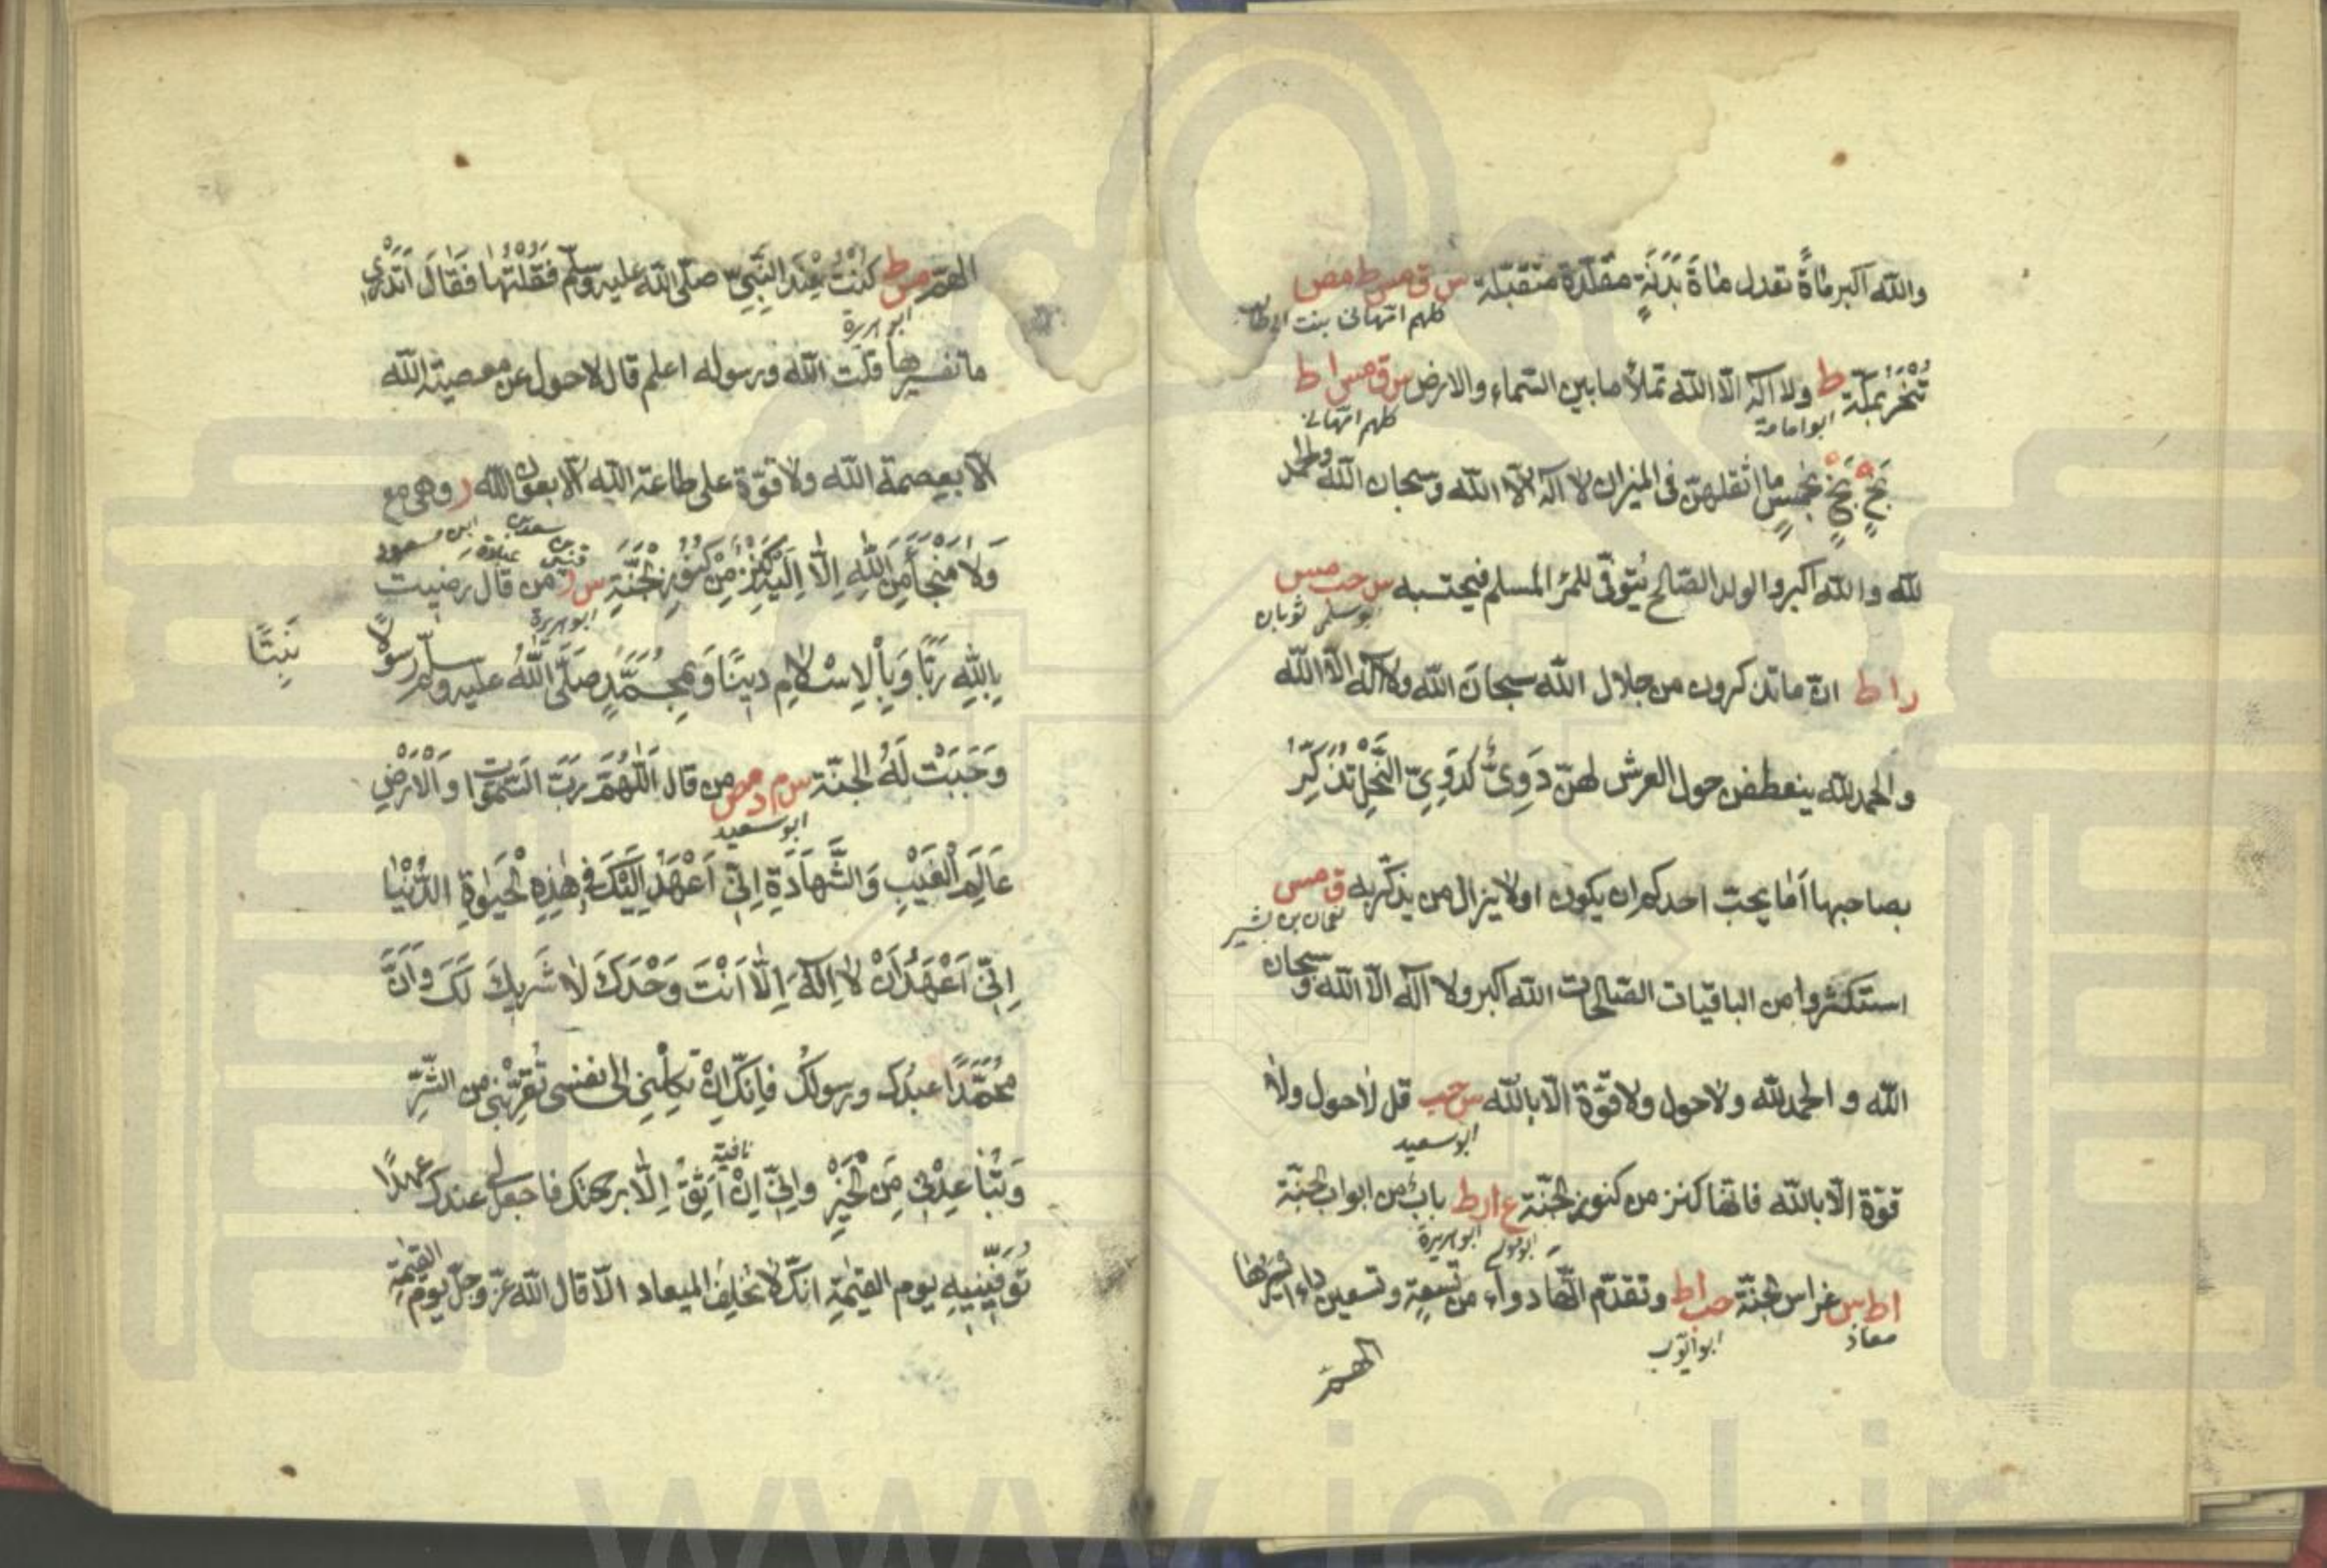 والله اكبر مأةً تعدل مأة بَدَنَةٍ مقلّدة متقبّلة س ق مس ط مص
كلهم امّهانى بنت ابى طالب
تُنْحَرُ بمكّة ط ولا اله الّا الله تملأ ما بين السّماء والارض س ق مس ا ط
ابوامامة كلهم امّهانى
بَخٍ بَخٍ بخمسٍ ما اثقلهنّ فى الميزان لا اله الّا الله وسبحان الله والحمد
لله والله اكبر والولد الصّالح يُتوفّى للمرْ المسلم فيحتسبه س حب مس
بوسلمى ثوبان
ر ا ط انّ ما تذكرون من جلال الله سبحان الله ولا اله الّا الله
والحمد لله ينعطفن حول العرش لهنّ دَوِىٌّ كدَوِىّ النَّحْلِ تُذَكِّرُ
بصاحبها اَمَا يحبّ احدكم ان يكون او لا يزال من يذكّر به ق مس
نعمان بن بشير
استكثروا من الباقيات الصّالحات الله اكبر ولا اله الّا الله وسبحان
الله والحمد لله ولا حول ولا قوّة الّا بالله س حب قل لا حول ولا
ابوسعيد
قوّة الّا بالله فانّها كنز من كنوز الجنّة ع ا ر ط باب من ابواب الجنّة
ابوموسى ابوهريرة
ا ط س غراس الجنّة حب ا ط وتقدّم انّها دواء من تسعةٍ وتسعين داء ايسرها
معاذ ابوايّوب
الهمّ
الهمّ مس ط كُنْتُ عِنْدَ النَّبِيِّ صلّى الله عليه وسلّم فَقُلْتُهَا فَقَالَ اَتَدْرِى
ابوهريرة
ما تفسيرها قلت الله ورسوله اعلم قال لا حول عن معصية الله
الّا بعصمة الله ولا قوّة على طاعة الله الّا بعون الله ر وهى مع
ابن مسعود
قيس بن سعد بن عبادة
وَلَا مَنْجَأَ مِنَ اللهِ اِلَّا اِلَيْهِ كَنْزٌ مِنْ كُنُوزِ الْجَنَّةِ س ر من قال رضيت
ابوهريرة
بِاللهِ رَبًّا وَبِالْاِسْلَامِ دِينًا وَبِمُحَمَّدٍ صَلَّى اللهُ عليه وسلّم رسولًا
نَبِيًّا
وَجَبَتْ لَهُ الجنّة س م د مص من قال اَللّٰهُمَّ رَبَّ السَّمٰوات وَالْاَرْضِ
ابوسعيد
عَالِمَ الْغَيْبِ وَالشَّهَادَةِ اِنِّى اَعْهَدُ اِلَيْكَ فِى هٰذِهِ الْحَيٰوةِ الدُّنْيَا
اِنِّى اَعْهَدُ اَنْ لَا اِلٰهَ اِلَّا اَنْتَ وَحْدَكَ لَا شَرِيكَ لَكَ وَاَنَّ
مُحَمَّدًا عبدُك ورسولُك فَاِنَّكَ اِنْ تَكِلْنِى الى نفسى تُقَرِّبْنِى من الشَّرِّ
وَتُبَاعِدْنِى مِنَ الْخَيْرِ وَاِنِّى اِنْ اَثِقُ اِلَّا برحمتك فاجعل لى عندك عهدًا
نافية
تُوَفِّينِيهِ يوم القيٰمة انّك لا تُخلِفُ الميعاد الّا قال الله عزّ وجلّ يوم القيٰمة